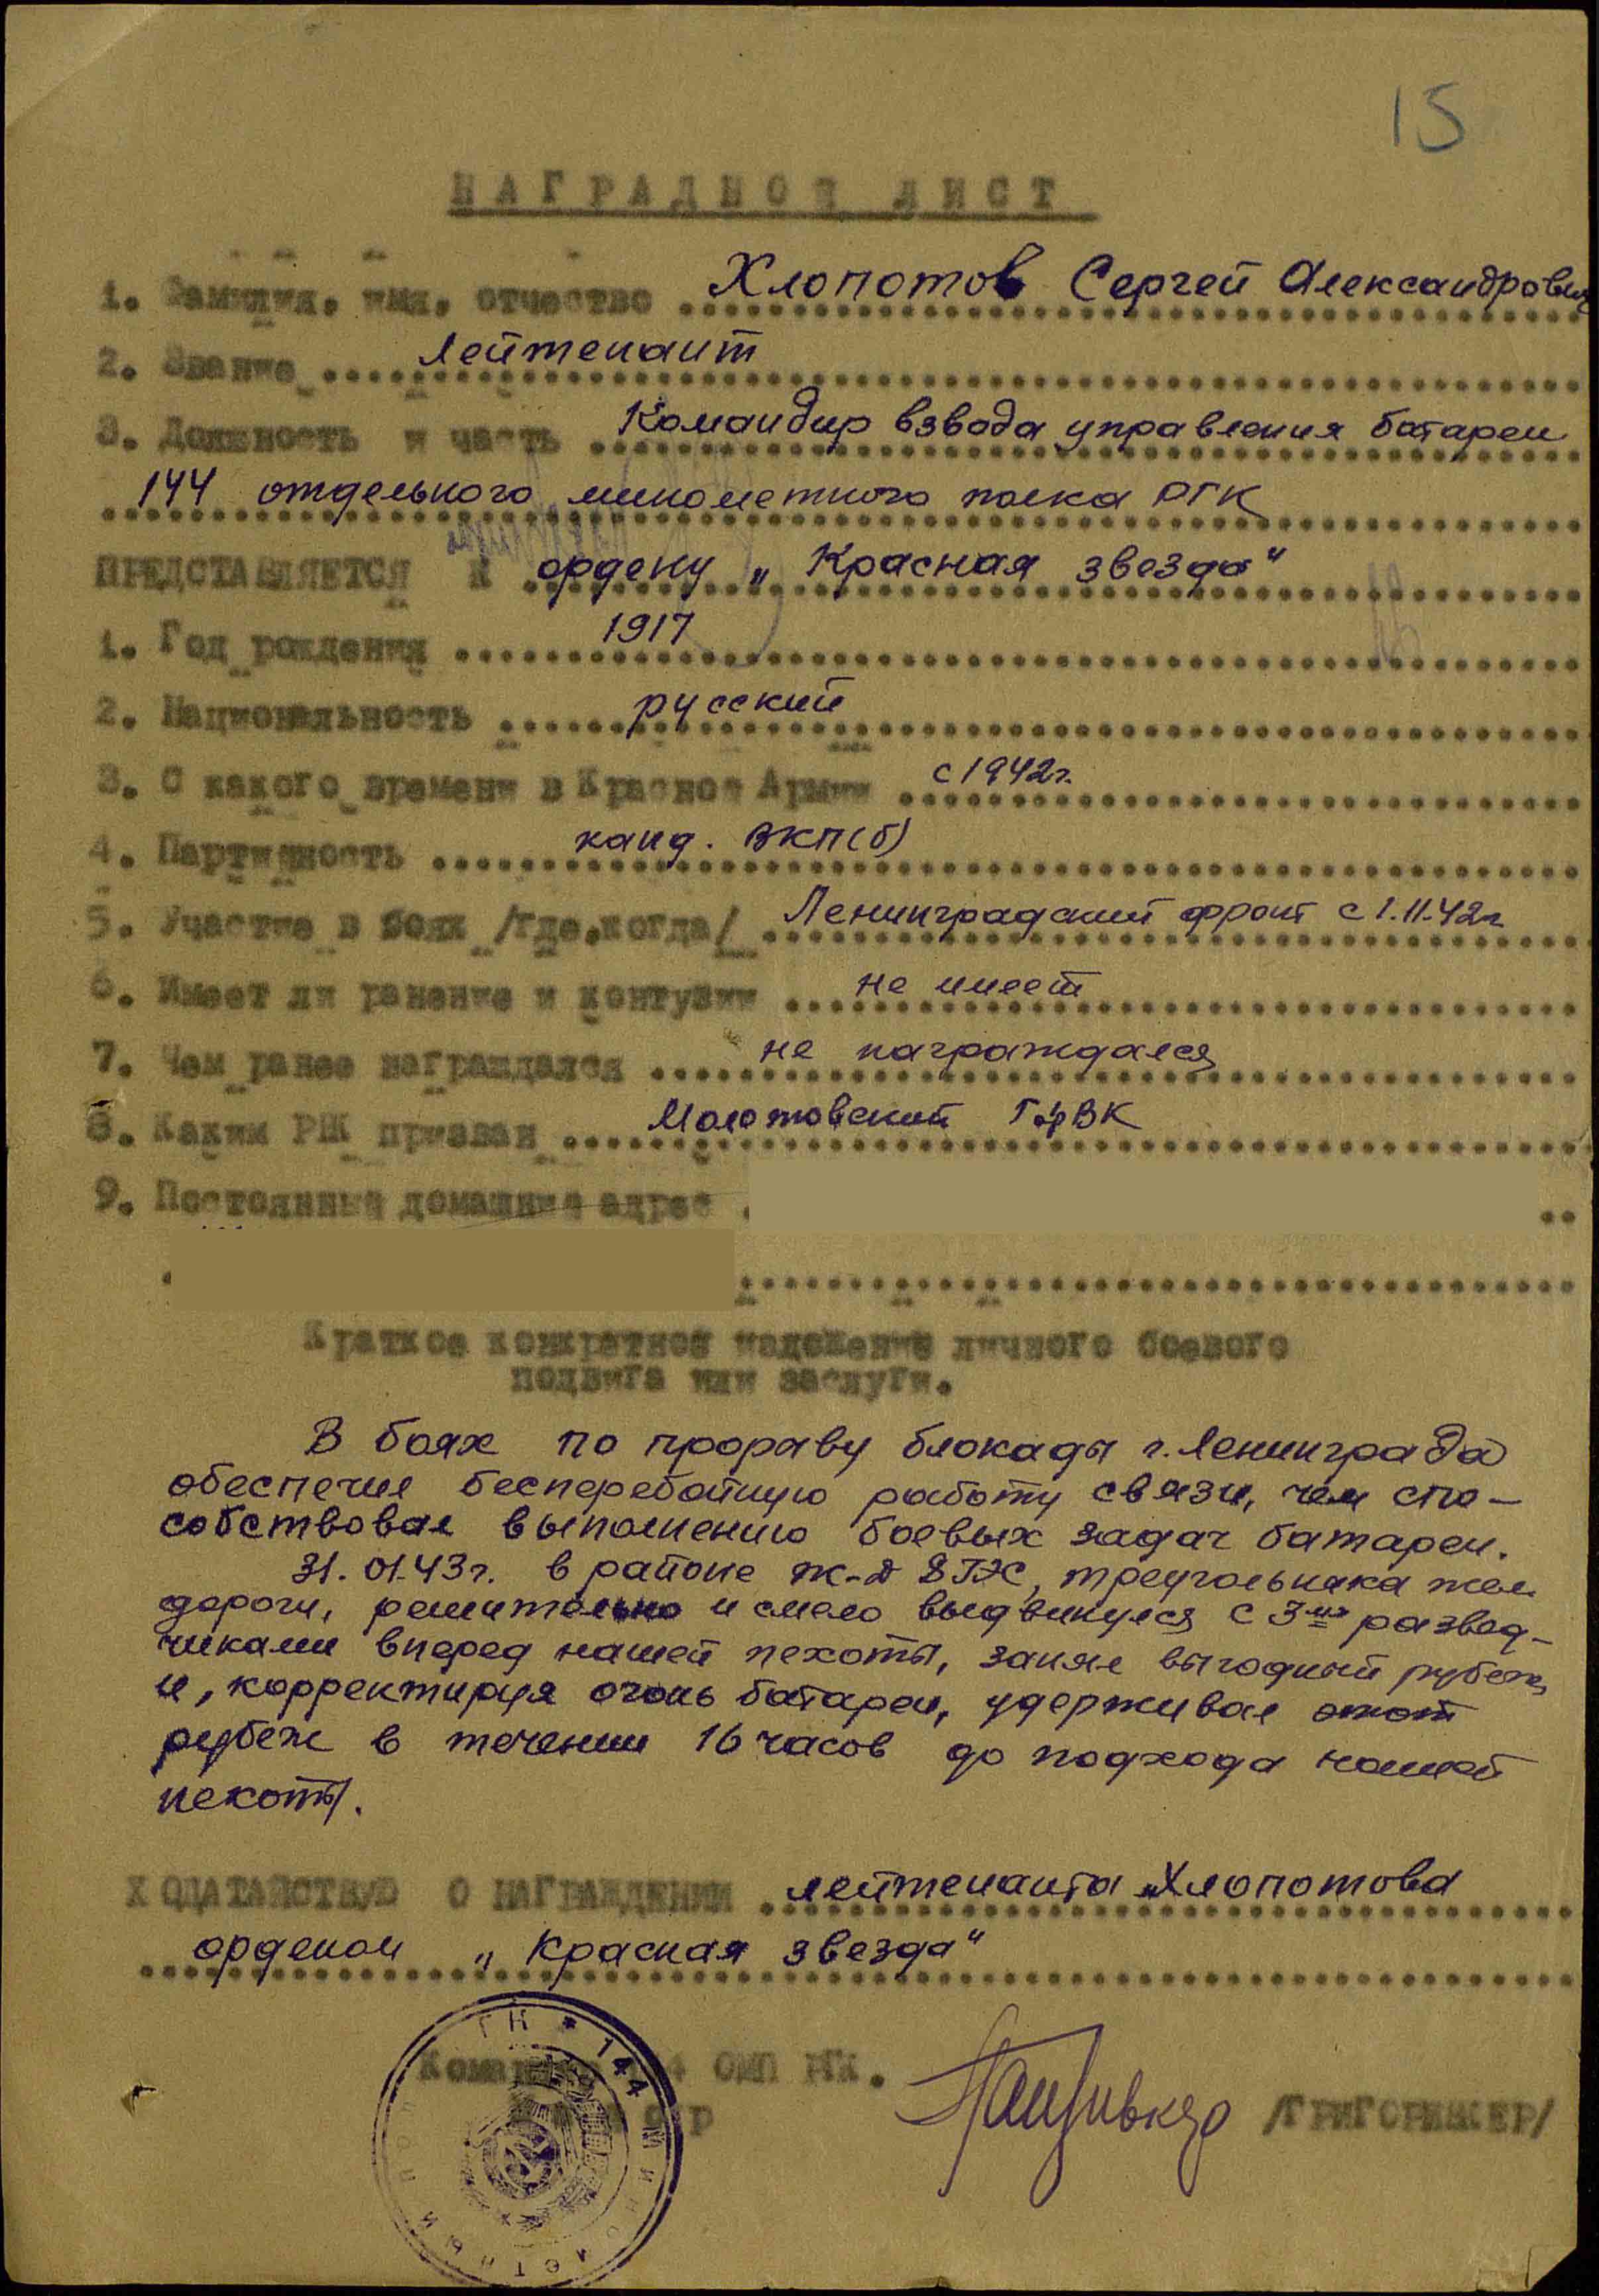 15
НАГРАДНОЙ ЛИСТ
1. Фамилия, имя, отчество Хлопотов Сергей Александрович
2. Звание Лейтенант
3. Должность и часть Командир взвода управления батареи
144 отдельного минометного полка РГК
ПРЕДСТАВЛЯЕТСЯ К ордену „Красная звезда"
1. Год рождения 1917
2. Национальность русский
3. С какого времени в Красной Армии с 1942г.
4. Партийность канд. ВКП(б)
5. Участие в боях /где, когда/ Ленинградский фронт с 1.11.42г
6. Имеет ли ранение и контузии не имеет
7. Чем ранее награждался не награждался
8. Каким РВК призван Молотовский ГРВК
9. Постоянный домашний адрес
Краткое конкретное изложение личного боевого
подвига или заслуги.
В боях по прорыву блокады г. Ленинграда
обеспечил бесперебойную работу связи, чем спо-
собствовал выполнению боевых задач батареи.
31.01.43г. в районе ж-д 8 ГЭС, треугольника жел
дороги, решительно и смело выдвинулся с 3мя развед-
чиками вперед нашей пехоты, занял выгодный рубеж,
и, корректируя огонь батареи, удерживал этот
рубеж в течении 16 часов до подхода нашей
пехоты.
ХОДАТАЙСТВУЮ О НАГРАЖДЕНИИ лейтенанта Хлопотова
орденом „Красная звезда"
ГН * 144 МИНОМЕТНЫЙ ПОЛК
ОМП РГК.
/ГРИГОРИВКЕР/